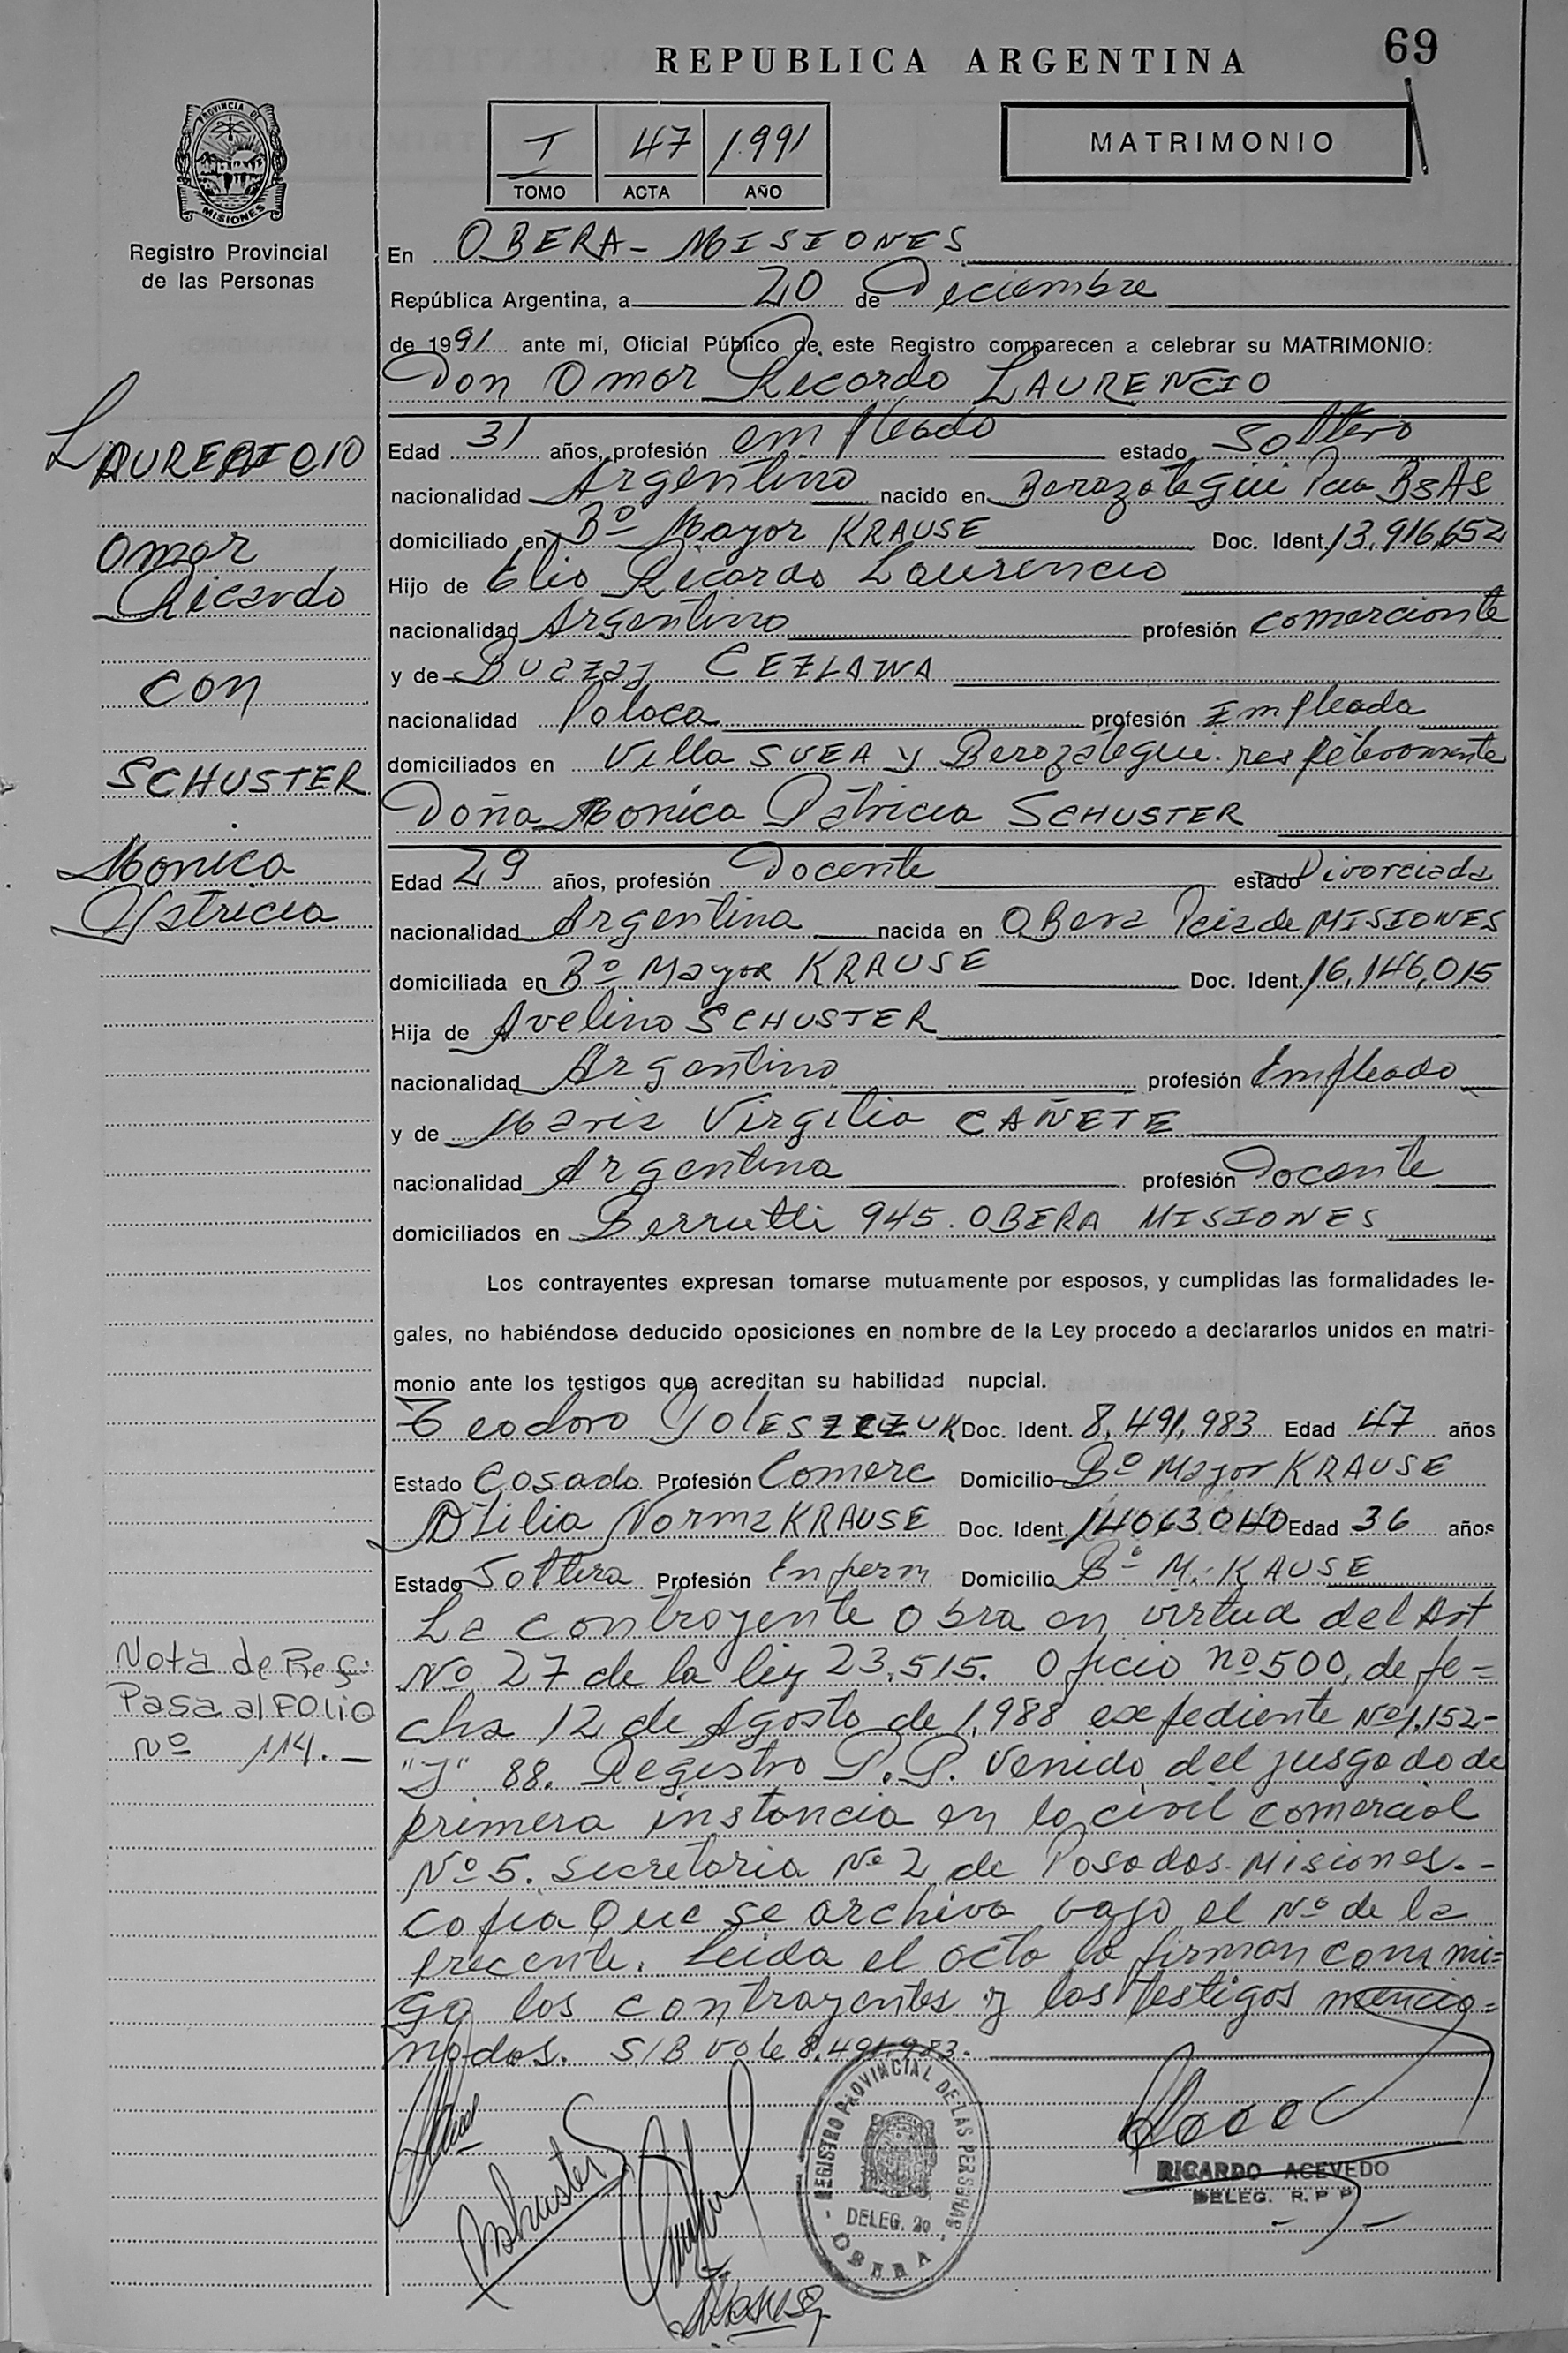 69
REPUBLICA ARGENTINA
PROVINCIA DE
MISIONES
Registro Provincial
de las Personas
I 47 1.991
TOMO ACTA AÑO
MATRIMONIO
En OBERA - MISIONES
República Argentina, a 20 de Diciembre
de 1991 ante mí, Oficial Público de este Registro comparecen a celebrar su MATRIMONIO:
Don Omar Ricardo LAURENCIO
Edad 31 años, profesión empleado estado Soltero
nacionalidad Argentino nacido en Berazategui Pcia BsAs
domiciliado en Bº Mayor KRAUSE Doc. Ident. 13,916,652
Hijo de Elio Ricardo Laurencio
nacionalidad Argentino profesión comerciante
y de CEZLAWA
nacionalidad Polaca profesión Empleada
domiciliados en Villa SVEA y Berazategui. respetivamente
Doña Monica Patricia SCHUSTER
Edad 29 años, profesión Docente estado Divorciada
nacionalidad Argentina nacida en OBera Pcia de MISIONES
domiciliada en Bº Mayor KRAUSE Doc. Ident. 16,146,015
Hija de Avelino SCHUSTER
nacionalidad Argentino profesión Empleado
y de Maria Virgilia CAÑETE
nacionalidad Argentina profesión Docente
domiciliados en Berrutti 945. OBERA MISIONES
Los contrayentes expresan tomarse mutuamente por esposos, y cumplidas las formalidades le-
gales, no habiéndose deducido oposiciones en nombre de la Ley procedo a declararlos unidos en matri-
monio ante los testigos que acreditan su habilidad nupcial.
Teodoro Doc. Ident. 8,491,983 Edad 47 años
Estado Casado Profesión Comerc Domicilio Bº Mayor KRAUSE
Otilia Norma KRAUSE Doc. Ident. 14063040 Edad 36 años
Estado Soltera Profesión Enferm Domicilio Bº M. KAUSE
La contrayente obra en virtud del Art
Nº 27 de la ley 23.515. Oficio nº 500, de fe=
cha 12 de Agosto de 1.988 expediente Nº 1.152-
"J" 88. Registro P.P. venido del jusgado de
primera instancia en lo civil comercial
Nº 5. secretaria Nº 2 de Posadas Misiones.-
copia Que se archiva vajo el Nº de la
precente. Leida el acta la firman conmi=
go los contrayentes y los testigos mencio=
nados. S/B vale 8.491,983.
LAURENCIO
Omar
Ricardo
con
SCHUSTER
Monica
Patricia
Nota de Ref:
Pasa al FOLIO
Nº 114.-
REGISTRO PROVINCIAL DE LAS PERSONAS
DELEG. 20
OBERA
RICARDO ACEVEDO
DELEG. R. P P